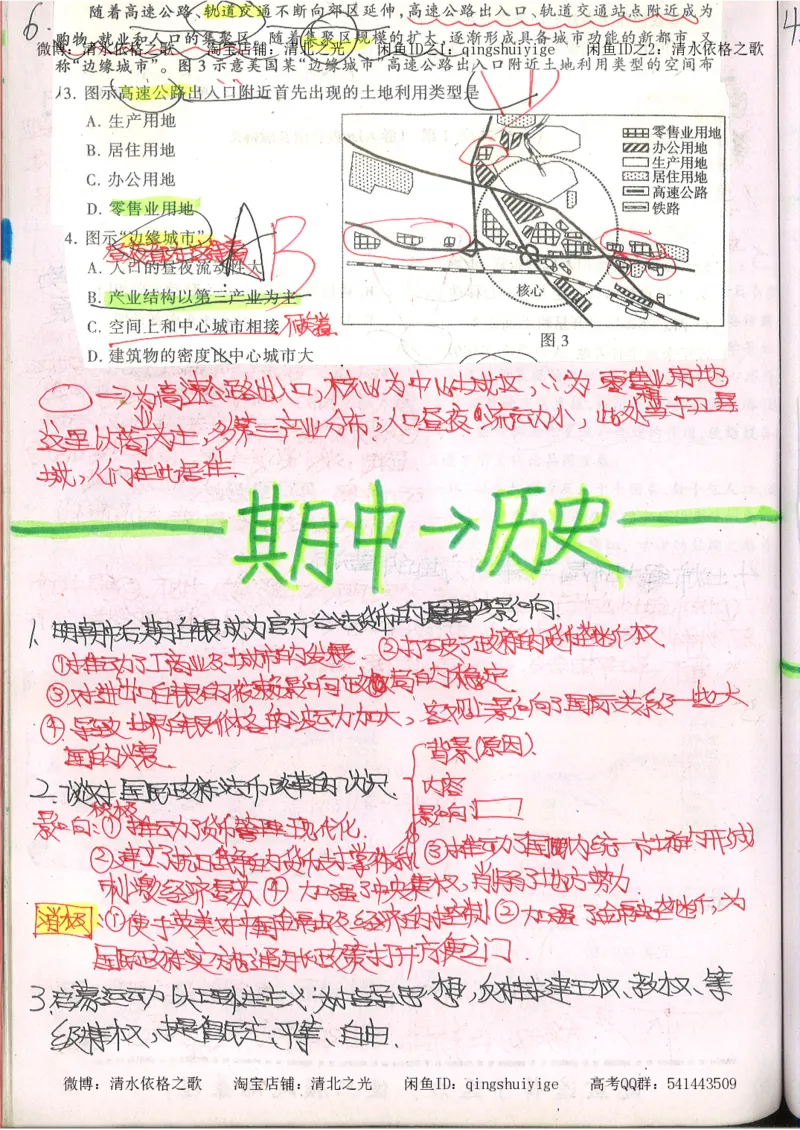 6.
随着高速公路、轨道交通不断向郊区延伸,高速公路出入口、轨道交通站点附近成为
购物、就业和人口的集聚区。随着集聚区规模的扩大,逐渐形成具备城市功能的新都市,又
微博:清水依格之歌 淘宝店铺:清北之光 闲鱼ID之1:qingshuiyige 闲鱼ID之2:清水依格之歌
称“边缘城市”。图3示意美国某“边缘城市”高速公路出入口附近土地利用类型的空间布
3. 图示高速公路出入口附近首先出现的土地利用类型是
A. 生产用地
B. 居住用地
C. 办公用地
D. 零售业用地
零售业用地
办公用地
生产用地
居住用地
高速公路
铁路
核心
图3
4. 图示“边缘城市”
A B
A. 人口的昼夜流动性大
B. 产业结构以第三产业为主
C. 空间上和中心城市相接 不挨着
D. 建筑物的密度比中心城市大
→为高速公路出入口,核心为中心城区,∴为零售业用地
这里以商业为主,多第三产业分布;人口昼夜流动小,此处相当于卫星
城,人们在此居住.
期中→历史
1. 明朝中后期白银成为官方合法货币的影响.
①推动了工商业及城市的发展. ②打破了政府的货币垄断权
③对进出口白银的依赖影响政局的稳定.
④导致世界白银价格的波动加大,客观上影响了国际关系和一些大
国的兴衰.
背景(原因).
内容
影响:
2. 谈谈对国民政府法币改革的认识.
影响:积极①推动了货币管理现代化.
②建立了抗日战争的货币支撑体系 ③推动了国内统一市场的形成
刺激经济复苏 ④加强了中央集权,削弱了地方势力.
消极:①便于英美对中国金融及经济的控制 ②加强了金融垄断,为
国民政府实行通胀政策打开方便之门.
3. 启蒙运动以理性主义为指导思想,反对封建王权、教权、等
级特权,提倡民主、平等、自由.
微博:清水依格之歌 淘宝店铺:清北之光 闲鱼ID:qingshuiyige 高考QQ群:541443509